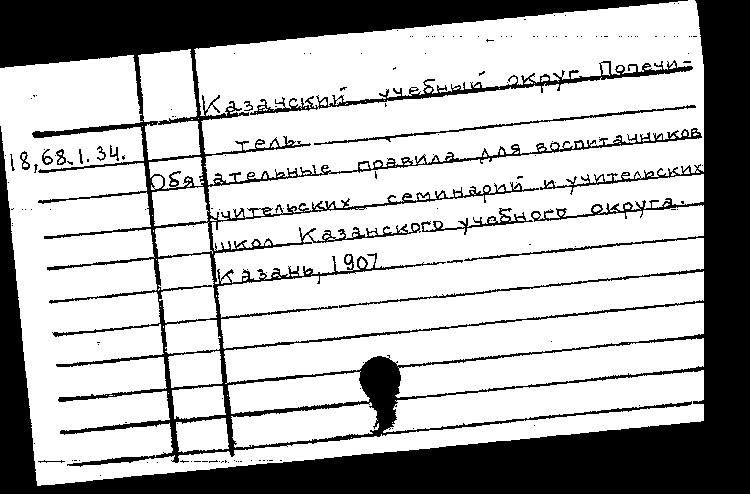 Казанский учебный округ. Попечи-
тель.
18,68.1.34.
Обязательные правила для воспитанников
учительских семинарий и учительских
школ Казанского учебного округа.
Казань, 1907